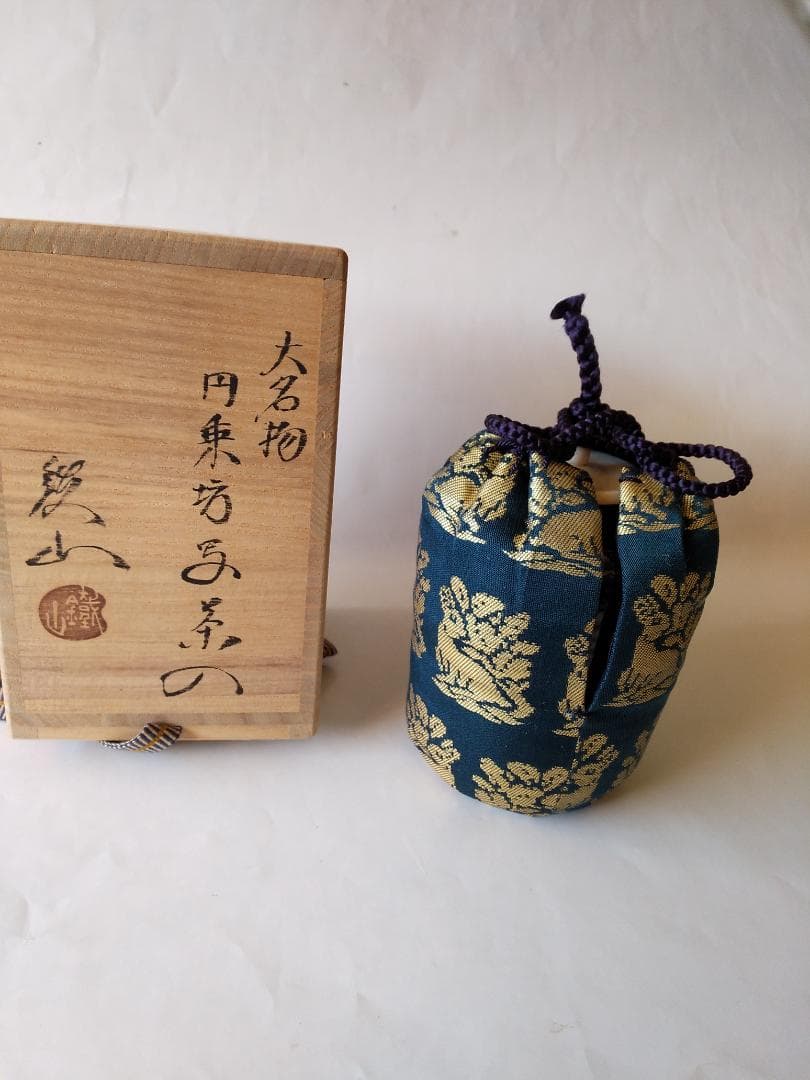 大名物
円乗坊写茶入
鐵山
鐵山